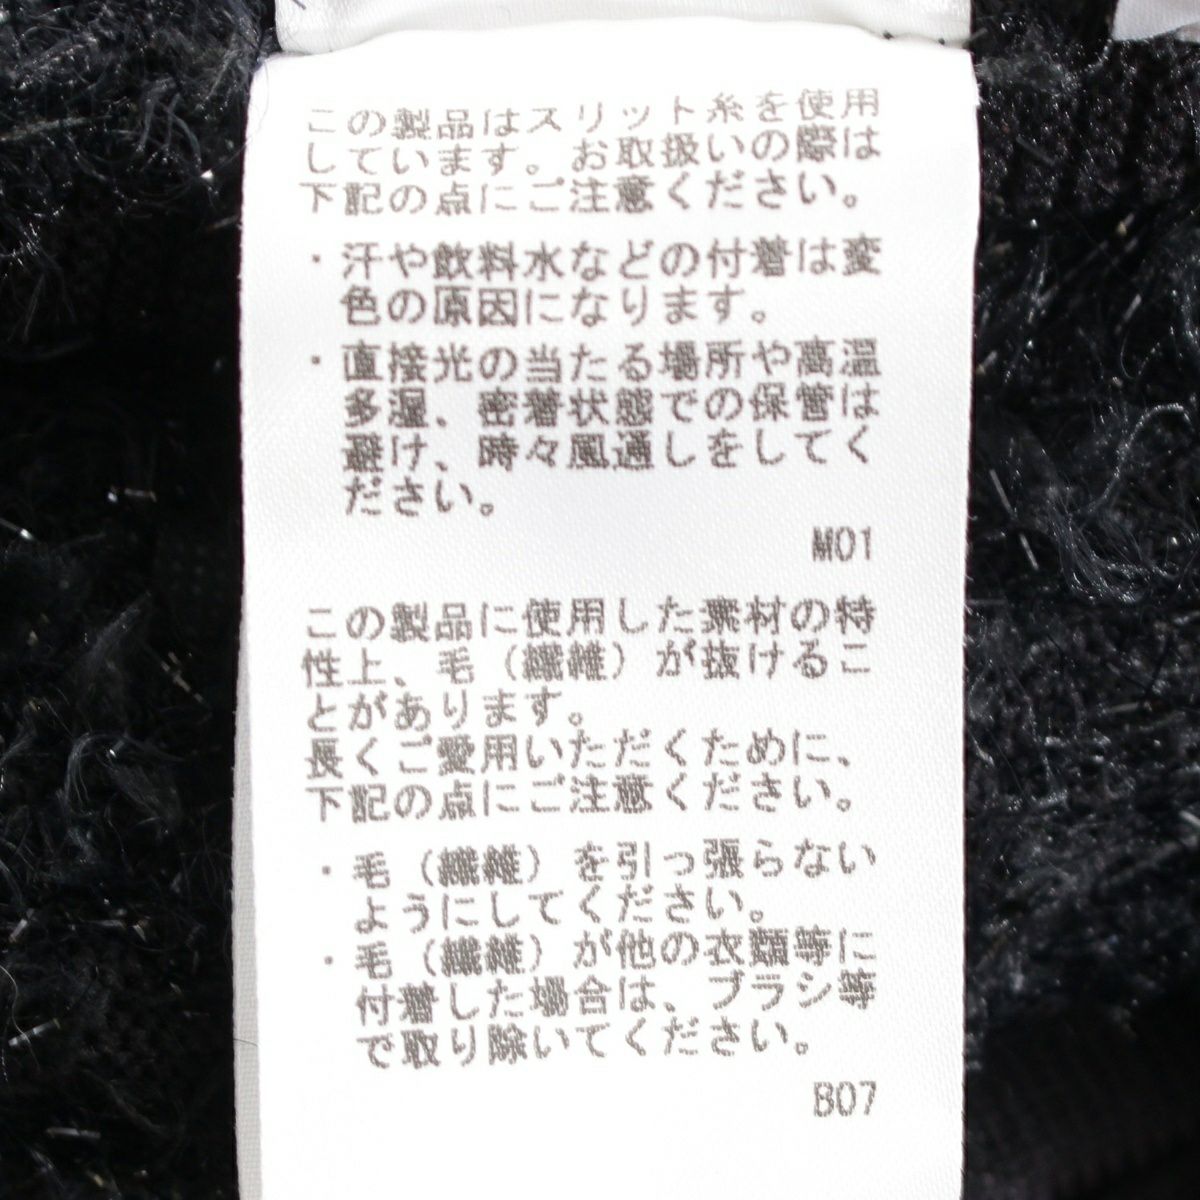 この製品はスリット糸を使用
しています。お取扱いの際は
下記の点にご注意ください。
・汗や飲料水などの付着は変
色の原因になります。
・直接光の当たる場所や高温
多湿、密着状態での保管は
避け、時々風通しをしてく
ださい。
M01
この製品に使用した素材の特
性上、毛（繊維）が抜けるこ
とがあります。
長くご愛用いただくために、
下記の点にご注意ください。
・毛（繊維）を引っ張らない
ようにしてください。
・毛（繊維）が他の衣類等に
付着した場合は、ブラシ等
で取り除いてください。
B07